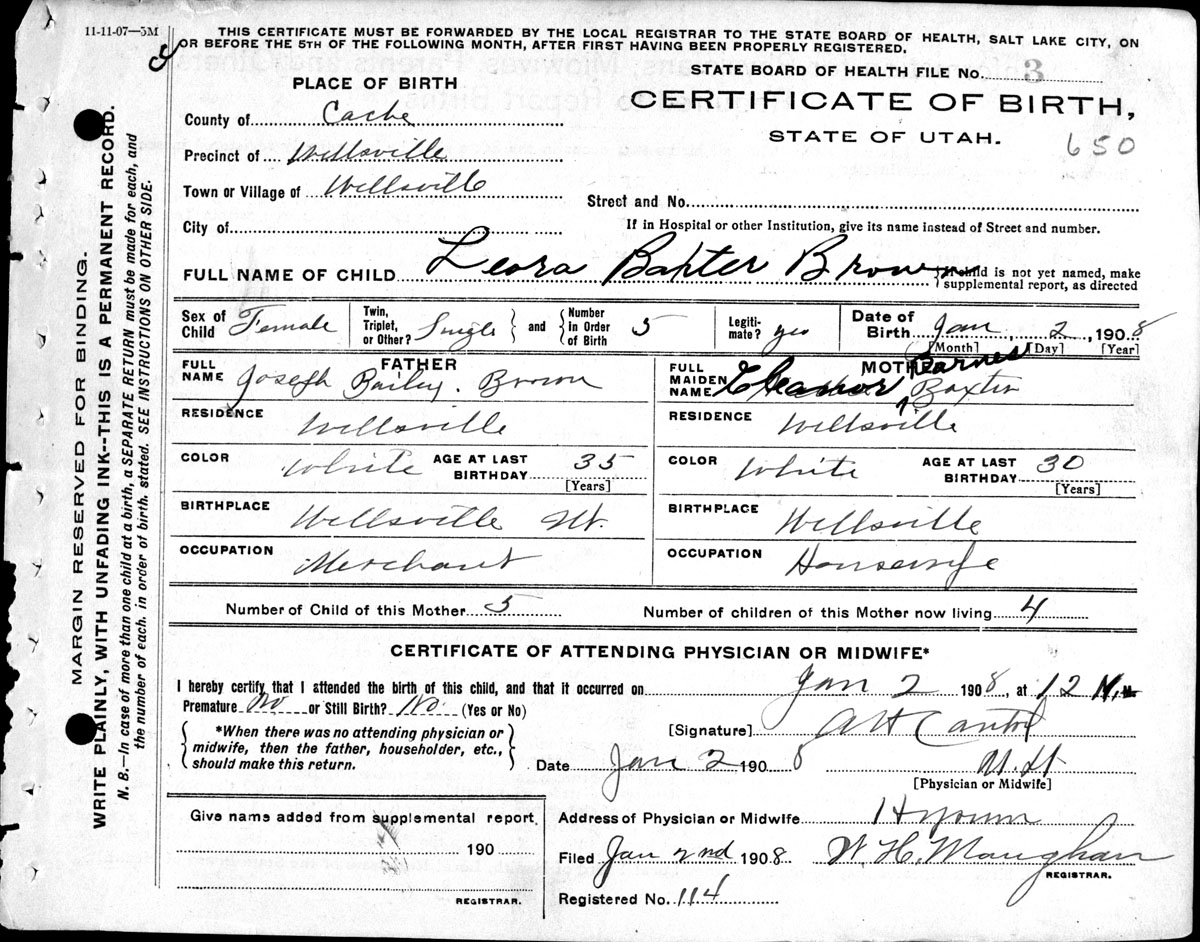 11-11-07—5M
THIS CERTIFICATE MUST BE FORWARDED BY THE LOCAL REGISTRAR TO THE STATE BOARD OF HEALTH, SALT LAKE CITY, ON
OR BEFORE THE 5TH OF THE FOLLOWING MONTH, AFTER FIRST HAVING BEEN PROPERLY REGISTERED.
STATE BOARD OF HEALTH FILE No. 3
PLACE OF BIRTH
CERTIFICATE OF BIRTH,
STATE OF UTAH.
650
County of Cache
Precinct of Wellsville
Town or Village of Wellsville
Street and No.
City of
If in Hospital or other Institution, give its name instead of Street and number.
FULL NAME OF CHILD Leora Baxter Brown
If child is not yet named, make
supplemental report, as directed
Sex of Child Female
Twin, Triplet, or Other? Single and Number in Order of Birth 5
Legiti-mate? yes
Date of Birth Jan 2, 1908
[Month] [Day] [Year]
FATHER
FULL NAME Joseph Bailey Brown
RESIDENCE Wellsville
COLOR White AGE AT LAST BIRTHDAY 35
[Years]
BIRTHPLACE Wellsville Ut.
OCCUPATION Merchant
MOTHER
FULL MAIDEN NAME Eleanor Barnes Baxter
RESIDENCE Wellsville
COLOR White AGE AT LAST BIRTHDAY 30
[Years]
BIRTHPLACE Wellsville
OCCUPATION Housewife
Number of Child of this Mother 5 Number of children of this Mother now living 4
CERTIFICATE OF ATTENDING PHYSICIAN OR MIDWIFE*
I hereby certify that I attended the birth of this child, and that it occurred on Jan 2 1908, at 12 M.
Premature No or Still Birth? No (Yes or No)
*When there was no attending physician or
midwife, then the father, householder, etc.,
should make this return.
[Signature]
Date Jan 2 1908
[Physician or Midwife]
Give name added from supplemental report
190
REGISTRAR.
Address of Physician or Midwife Hyrum
Filed Jan 2nd 1908 W. H. Maughan
REGISTRAR.
Registered No. 114
MARGIN RESERVED FOR BINDING.
WRITE PLAINLY, WITH UNFADING INK--THIS IS A PERMANENT RECORD.
N. B.—In case of more than one child at a birth, a SEPARATE RETURN must be made for each, and
the number of each, in order of birth, stated. SEE INSTRUCTIONS ON OTHER SIDE.